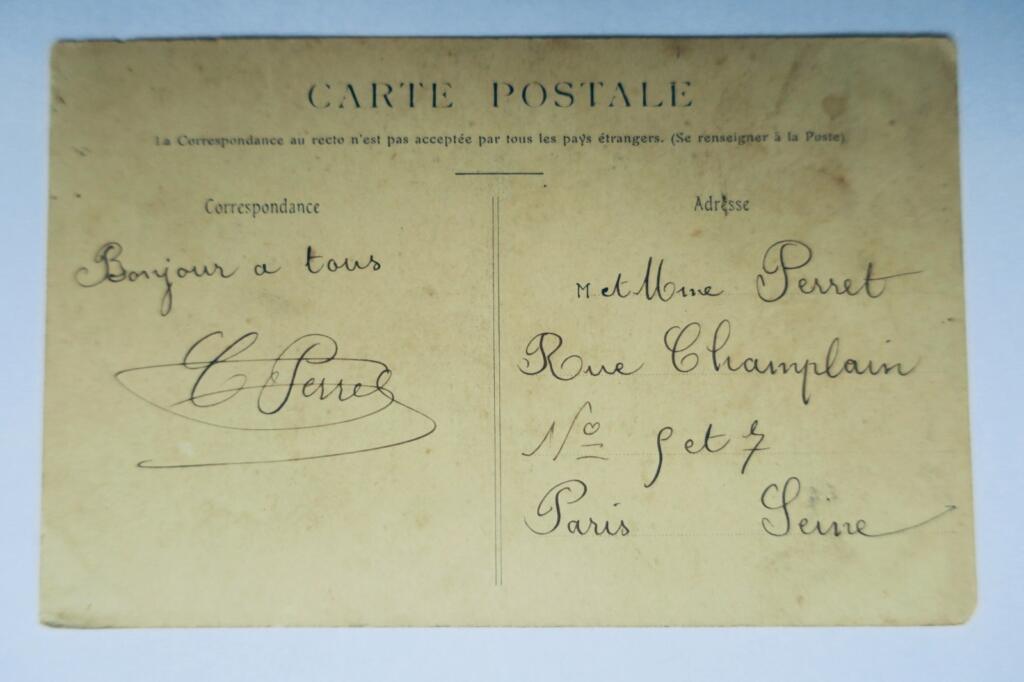 CARTE POSTALE
La Correspondance au recto n'est pas acceptée par tous les pays étrangers. (Se renseigner à la Poste)
Correspondance
Bonjour a tous
C Perret
Adresse
M et Mme Perret
Rue Champlain
No 5 et 7
Paris Seine